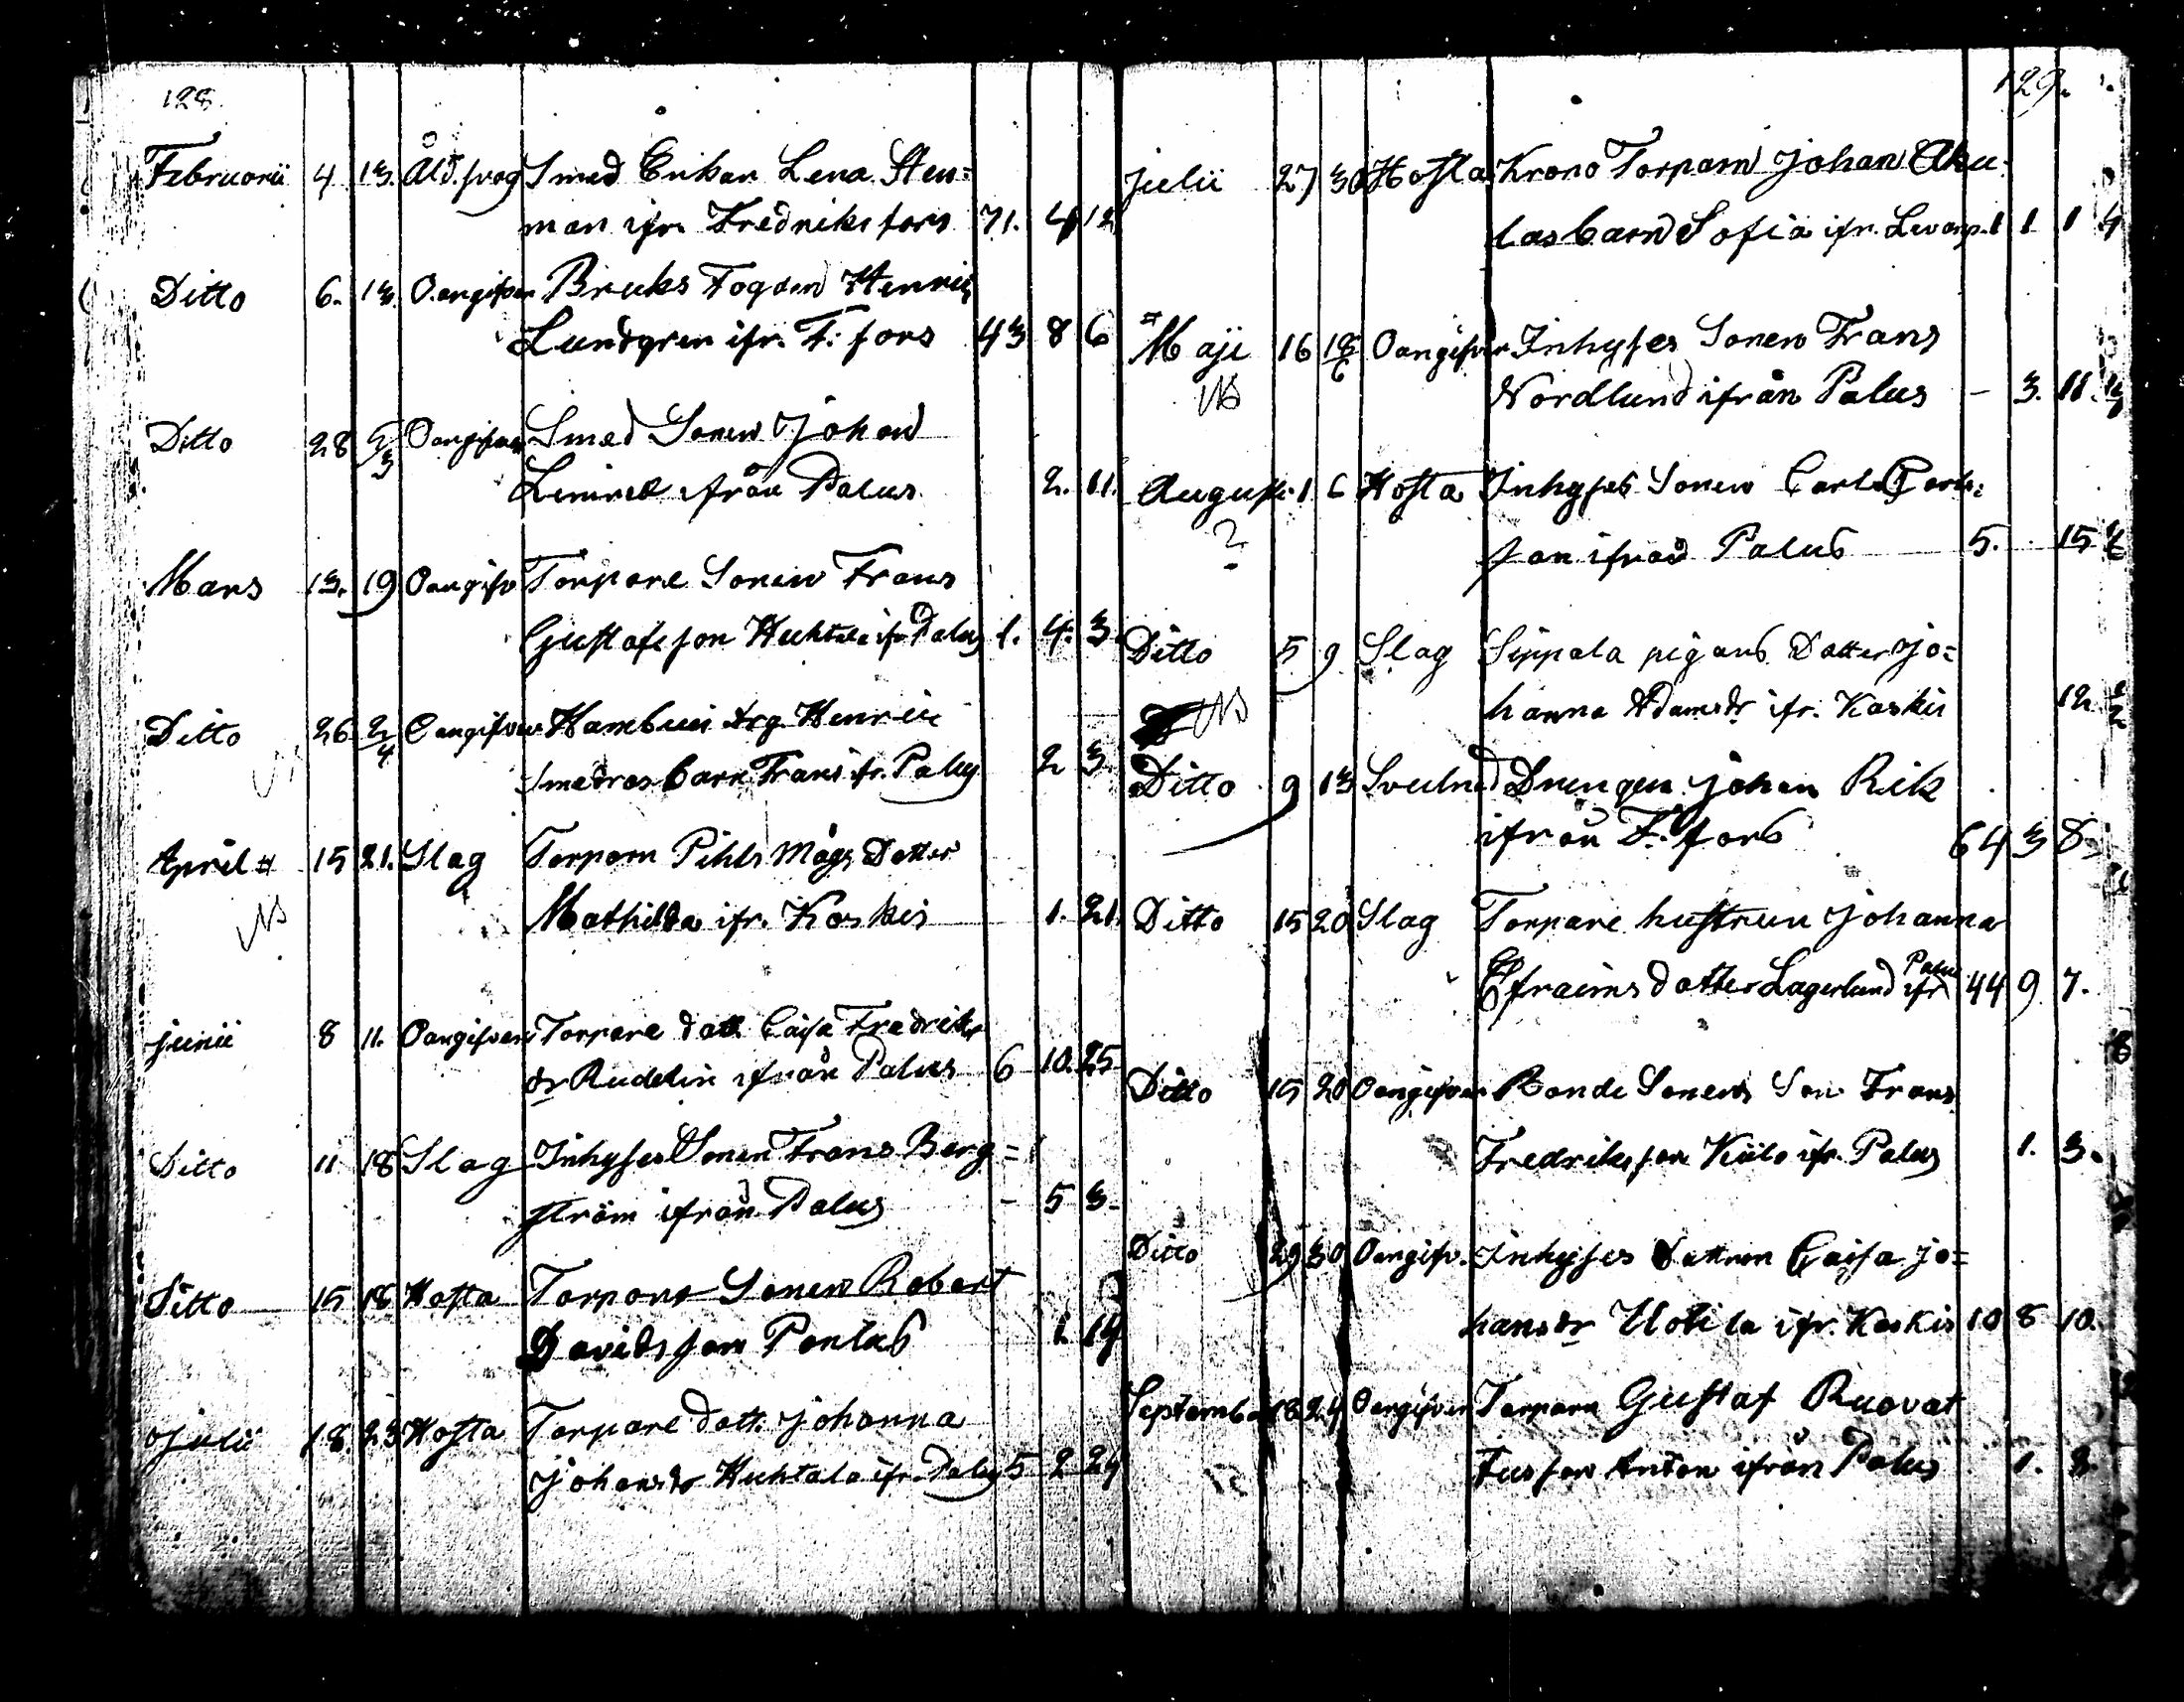 128.
Februarii 4 13. Åld.svag Smed Enkan Lena Sten=
man ifr. Fredriksfors 71. 4 12
Ditto 6. 13. Oangifven Bruks Fogden Henric
Lundgren ifr. F: fors 43 8 6
Ditto 28 5/3 Oangifven Smed Sonen Johan
ifrån Palus 2. 11.
Mars 13. 19 Oangifv Torpare Sonen Frans
Gustafsson Huhtala ifr Palus 1. 4. 3.
Ditto 26 2/4 Oangifven Henric
Smedras barn Frans ifr. Palus 2 3.
April # 15 21. Slag Torparn Pihls Mågs Dotter
NB Mathilda ifr. Koskis 1. 21.
Junii 8 11. Oangifven Torpare dott Caisa Fredriks
dr Rudelin ifrån Palus 6 10. 25
Ditto 11 18 Slag Inhyses Sonen Frans Berg=
ström ifrån Palus - 5 3.
Ditto 15 18 Hosta Torpare Sonen Robert
Davidsson Pontus 1. 14
Julii 18. 23 Hosta Torpare dott. Johanna
Johansdr Huhtala ifr. Palus 5 2 24
129.
Julii 27 30 Hosta Krono Torparn Johan Aku
las barn Sofia ifr. 1 1 4
# Maji 16 18/6 Oangifven Inhyses Sonen Frans
NB Nordlund ifrån Palus - 3. 11.
Augusti 1 6 Hosta Inhyses Sonen Carl
? son ifrån Palus 5. 15
Ditto 5 9 Slag Sippala pigans Dotter Jo=
NB hanna Adamsdr ifr. Koskis 12
Ditto 9 13 Drengen Johan Rik
ifrån F: fors 64 3 8
Ditto 15 20 Slag Torpare hustrun Johanna
Efraimsdotter Lagerlund ifr Palus 44 9 7.
Ditto 15 20 Oangifven Bonde Sonens Son Frans
Fredriksson Kiilo ifr. Palus 1. 3.
Ditto 29 30 Oangifv. Inhyses dottren Caisa Jo=
hansdr Uotila ifr. Koskis 10 8 10.
September 18 24 Oangifven Torparn Gustaf Ruovat
tus son Anton ifrån Palus 1. 8.